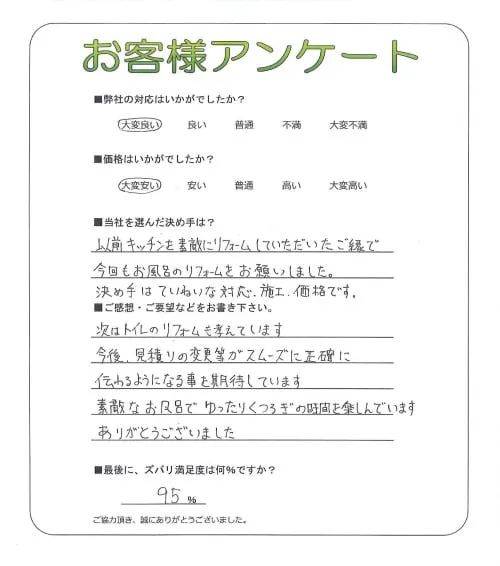 お客様アンケート
■弊社の対応はいかがでしたか？
大変良い 良い 普通 不満 大変不満
■価格はいかがでしたか？
大変安い 安い 普通 高い 大変高い
■当社を選んだ決め手は？
以前キッチンを素敵にリフォームしていただいたご縁で
今回もお風呂のリフォームをお願いしました。
決め手はていねいな対応、施工、価格です。
■ご感想・ご要望などをお書き下さい。
次はトイレのリフォームも考えています
今後、見積りの変更等がスムーズに正確に
伝わるようになる事を期待しています
素敵なお風呂でゆったりくつろぎの時間を楽しんでいます
ありがとうございました
■最後に、ズバリ満足度は何％ですか？
95 %
ご協力頂き、誠にありがとうございました。